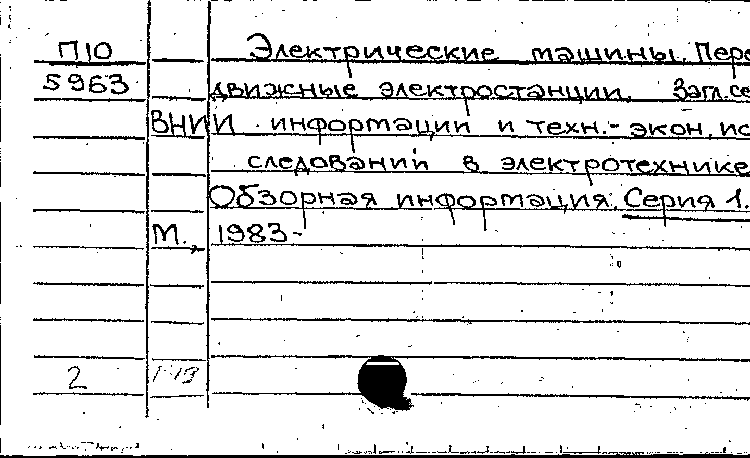 П10 Электрические машины. Пере
5963 движные электростанции. Загл.се
ВНИИ информации и техн.- экон. ис
следований в электротехнике
Обзорная информация. Серия 1.
М., 1983-
2